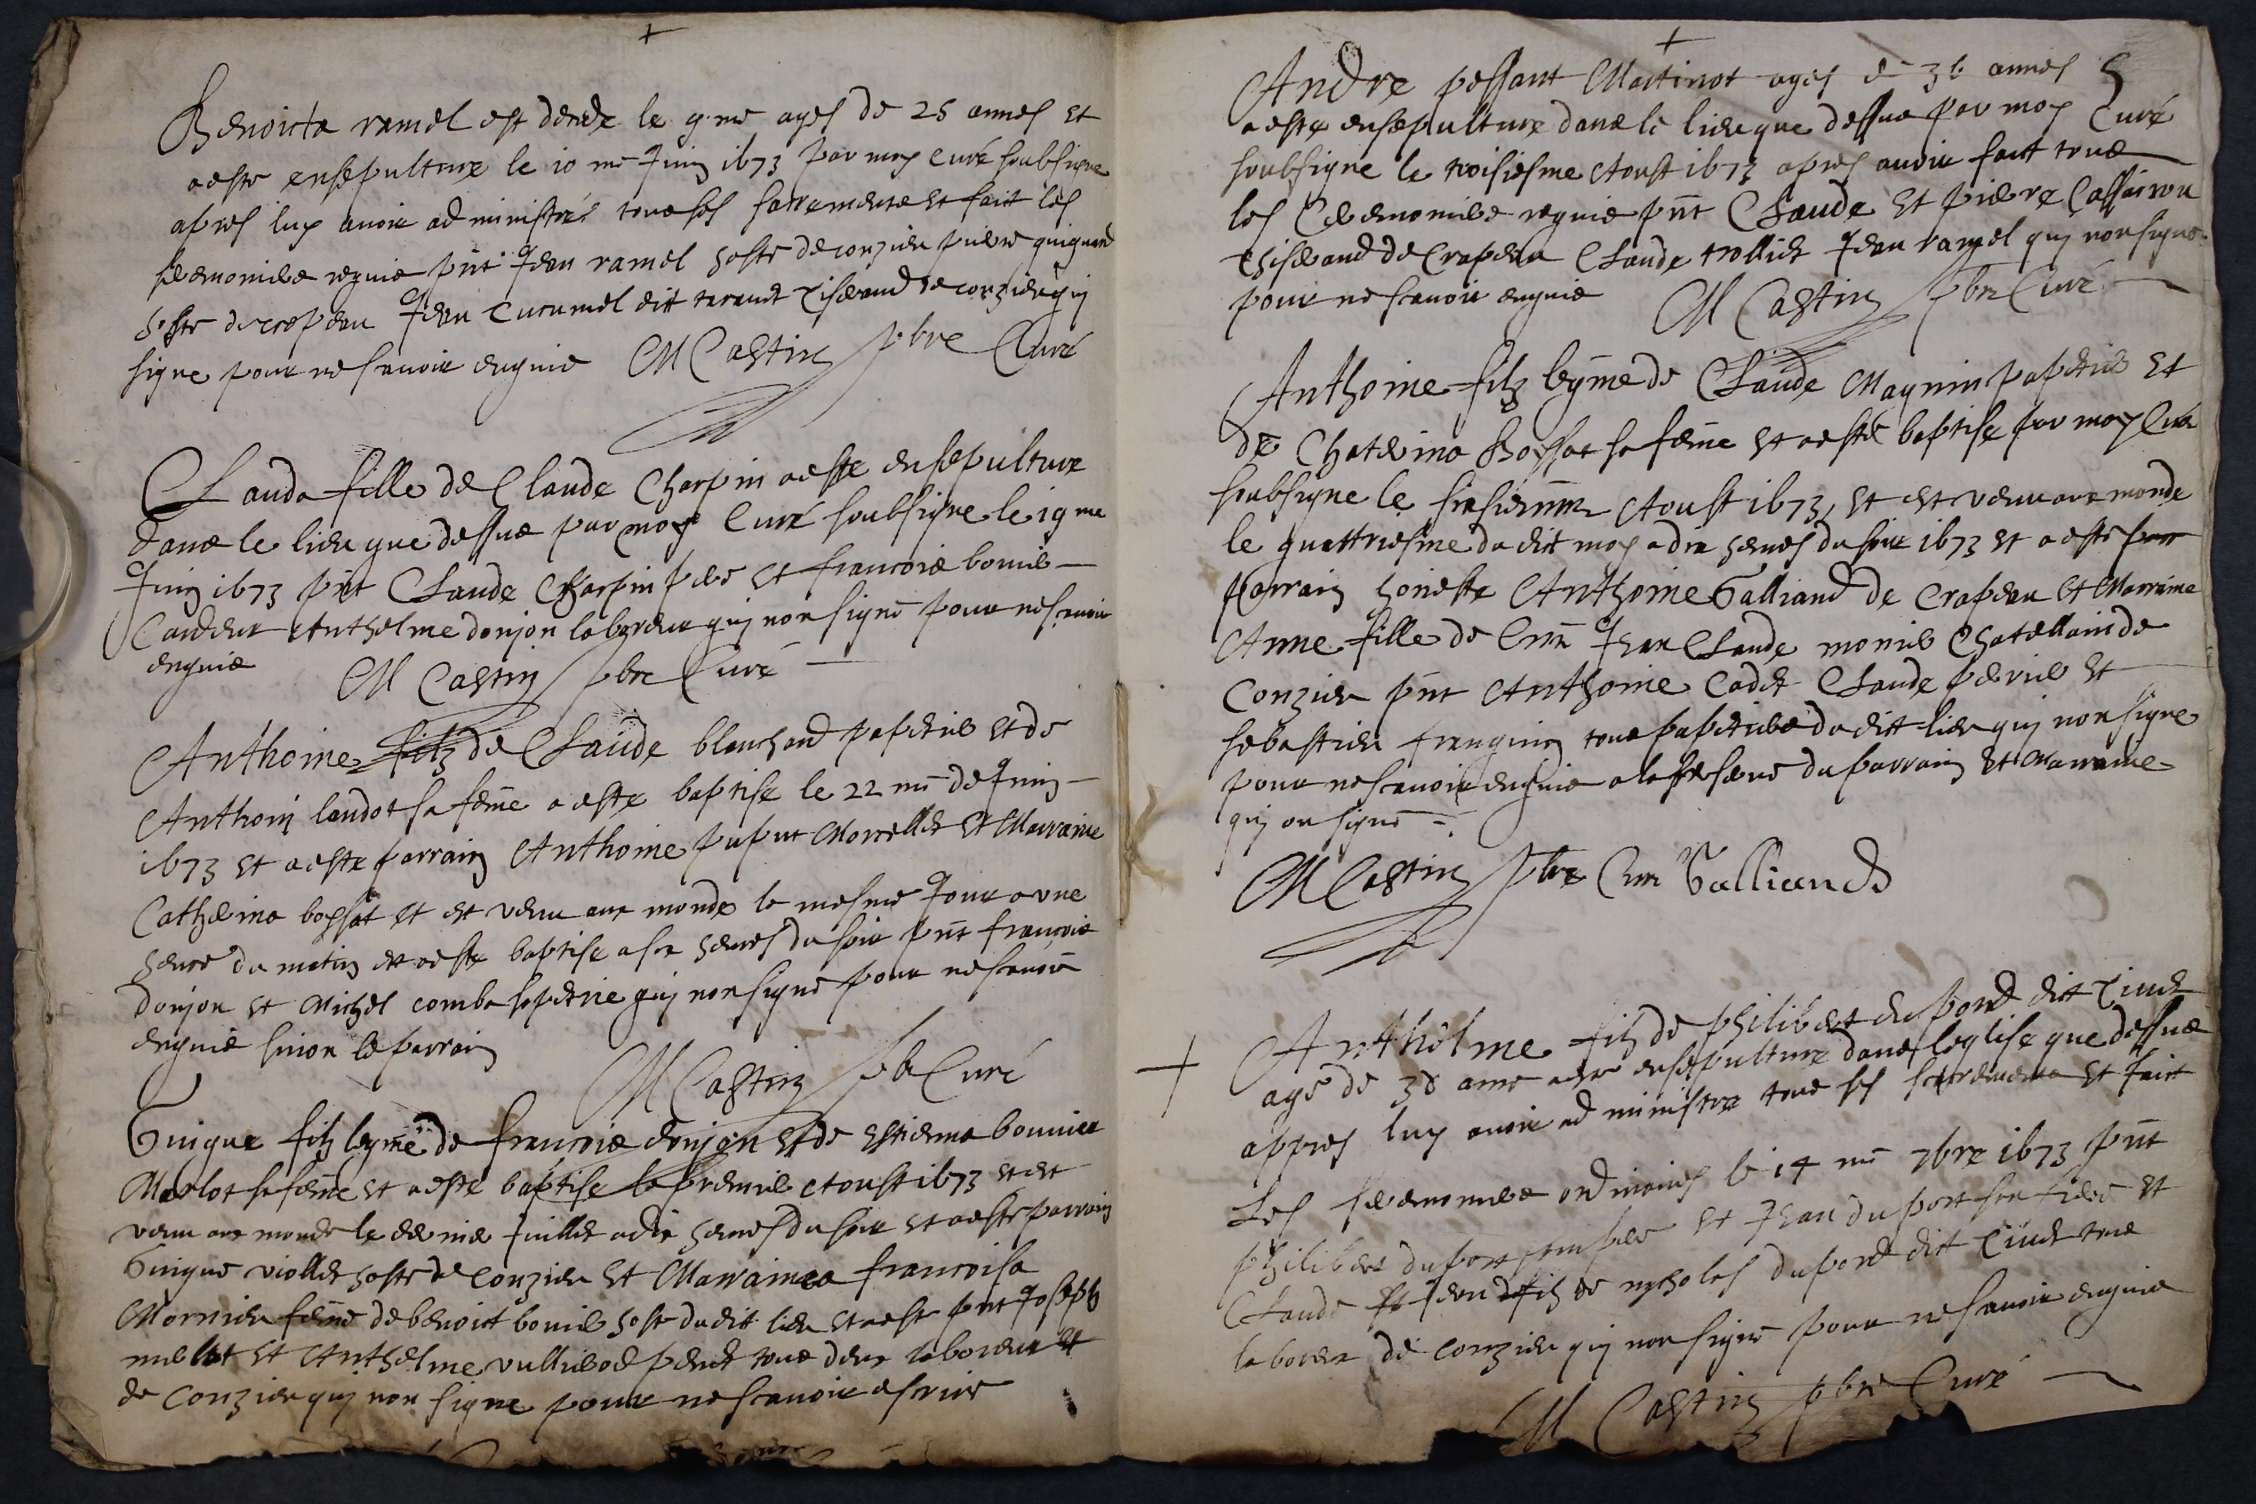 Benoicta ramel est deude le 9 me ages de 25 annes et
a este ensepulture le 10 me Juin 1673 par moy curé soubsigne
apres luy avoir administré tous ses sacrements et faict les
seremonies requis pnt Jean ramel hoste de conzieu pierre guiguard
hoste de crapeau Jean Cucumel dit tisserand de conzieu qui
signe pour ne scavoir enquis M Castin pbre Curé
Clauda fille de Claude Charpin a este ensepulture
dans le lieu que dessus par moy Curé soubsigne le 19 me
Juin 1673 pnt Claude Charpin pere et francois bonnie
Cardeur Anthelme donjon laboreur qui non signe pour ne scavoir
enquis M Castin pbre Curé
Anthoine filz de Claude blanchard papetie et de
Anthoin landot sa feme a este baptise le 22 me de Juin
1673 et a este parrain Anthoine puput Morcellet et Marraine
Catherina boyssat et est venu aux monde le mesme Jour a une
heure du matin et a este baptise a six heures du soir pnt francois
donjon et Michel comba qui non signe pour ne scavoir
enquis sinon le parrain
M Castin pbre Curé
Guigue filz legme de francois donjon et de Estiema bonnier
Merlot sa feme et a este baptise le premie Aoust 1673 et est
venu aux monde le dernie Juillet a dix heures du soir et a este parrain
Guigue viollet hoste de Conzieu et Marrainea francoisa
Mornieu feme de benoict bonie hoste du dit lieu et a este pnt Joseph
et Anthelme tous deux laboreur
de Conzieu qui non signe pour ne scavoir escrire
Andre pessant Martinot ages de 36 annes
a este ensepulture dans le lieu que dessus par moy Curé
soubsigne le troisiesme Aoust 1673 apres avoir faict tous
les Ceremonies requis pnt Claude et pierre
thiserand de Crapeau Claude trolliet Jean ramel qui non signe
pour ne scavoir enquis M Castin pbre Curé
Anthoine filz legme de Claude Magnin papetie et
de Chaterina Boyssat sa feme et a esté baptise par moy Curé
soubsigne le Aoust 1673, et est venu aux monde
le quattriesme du dit moy a dix heures du soir 1673 et a este
parrain honeste Anthoine Galliand de Crapeau et Marraine
Anne fille de Jean Claude monie Chatellain de
Conzieu pnt Anthoine Cadet Claude perrie et
sebastien franquin tous papeties du dit lieu qui non signe
pour ne scavoir enquis a la presence du parrain et Marraine
qui on signe
M Castin pbre Curé Galliand
Anthelme filz de philibert du pord dit Tiud
age de 38 anne a este ensepulture dans leglise que dessus
appres luy avoir administre tous ses sacrements et faict
Les seremonies ordinaires le 14 me 7bre 1673 pnt
philibert duport son pere et Jean du port son frere et
Claude et Jean filz de nycholas du pord dit tous
laborer de conzieu qui non signe pour ne scavoir enquis
M Castin pbre Curé